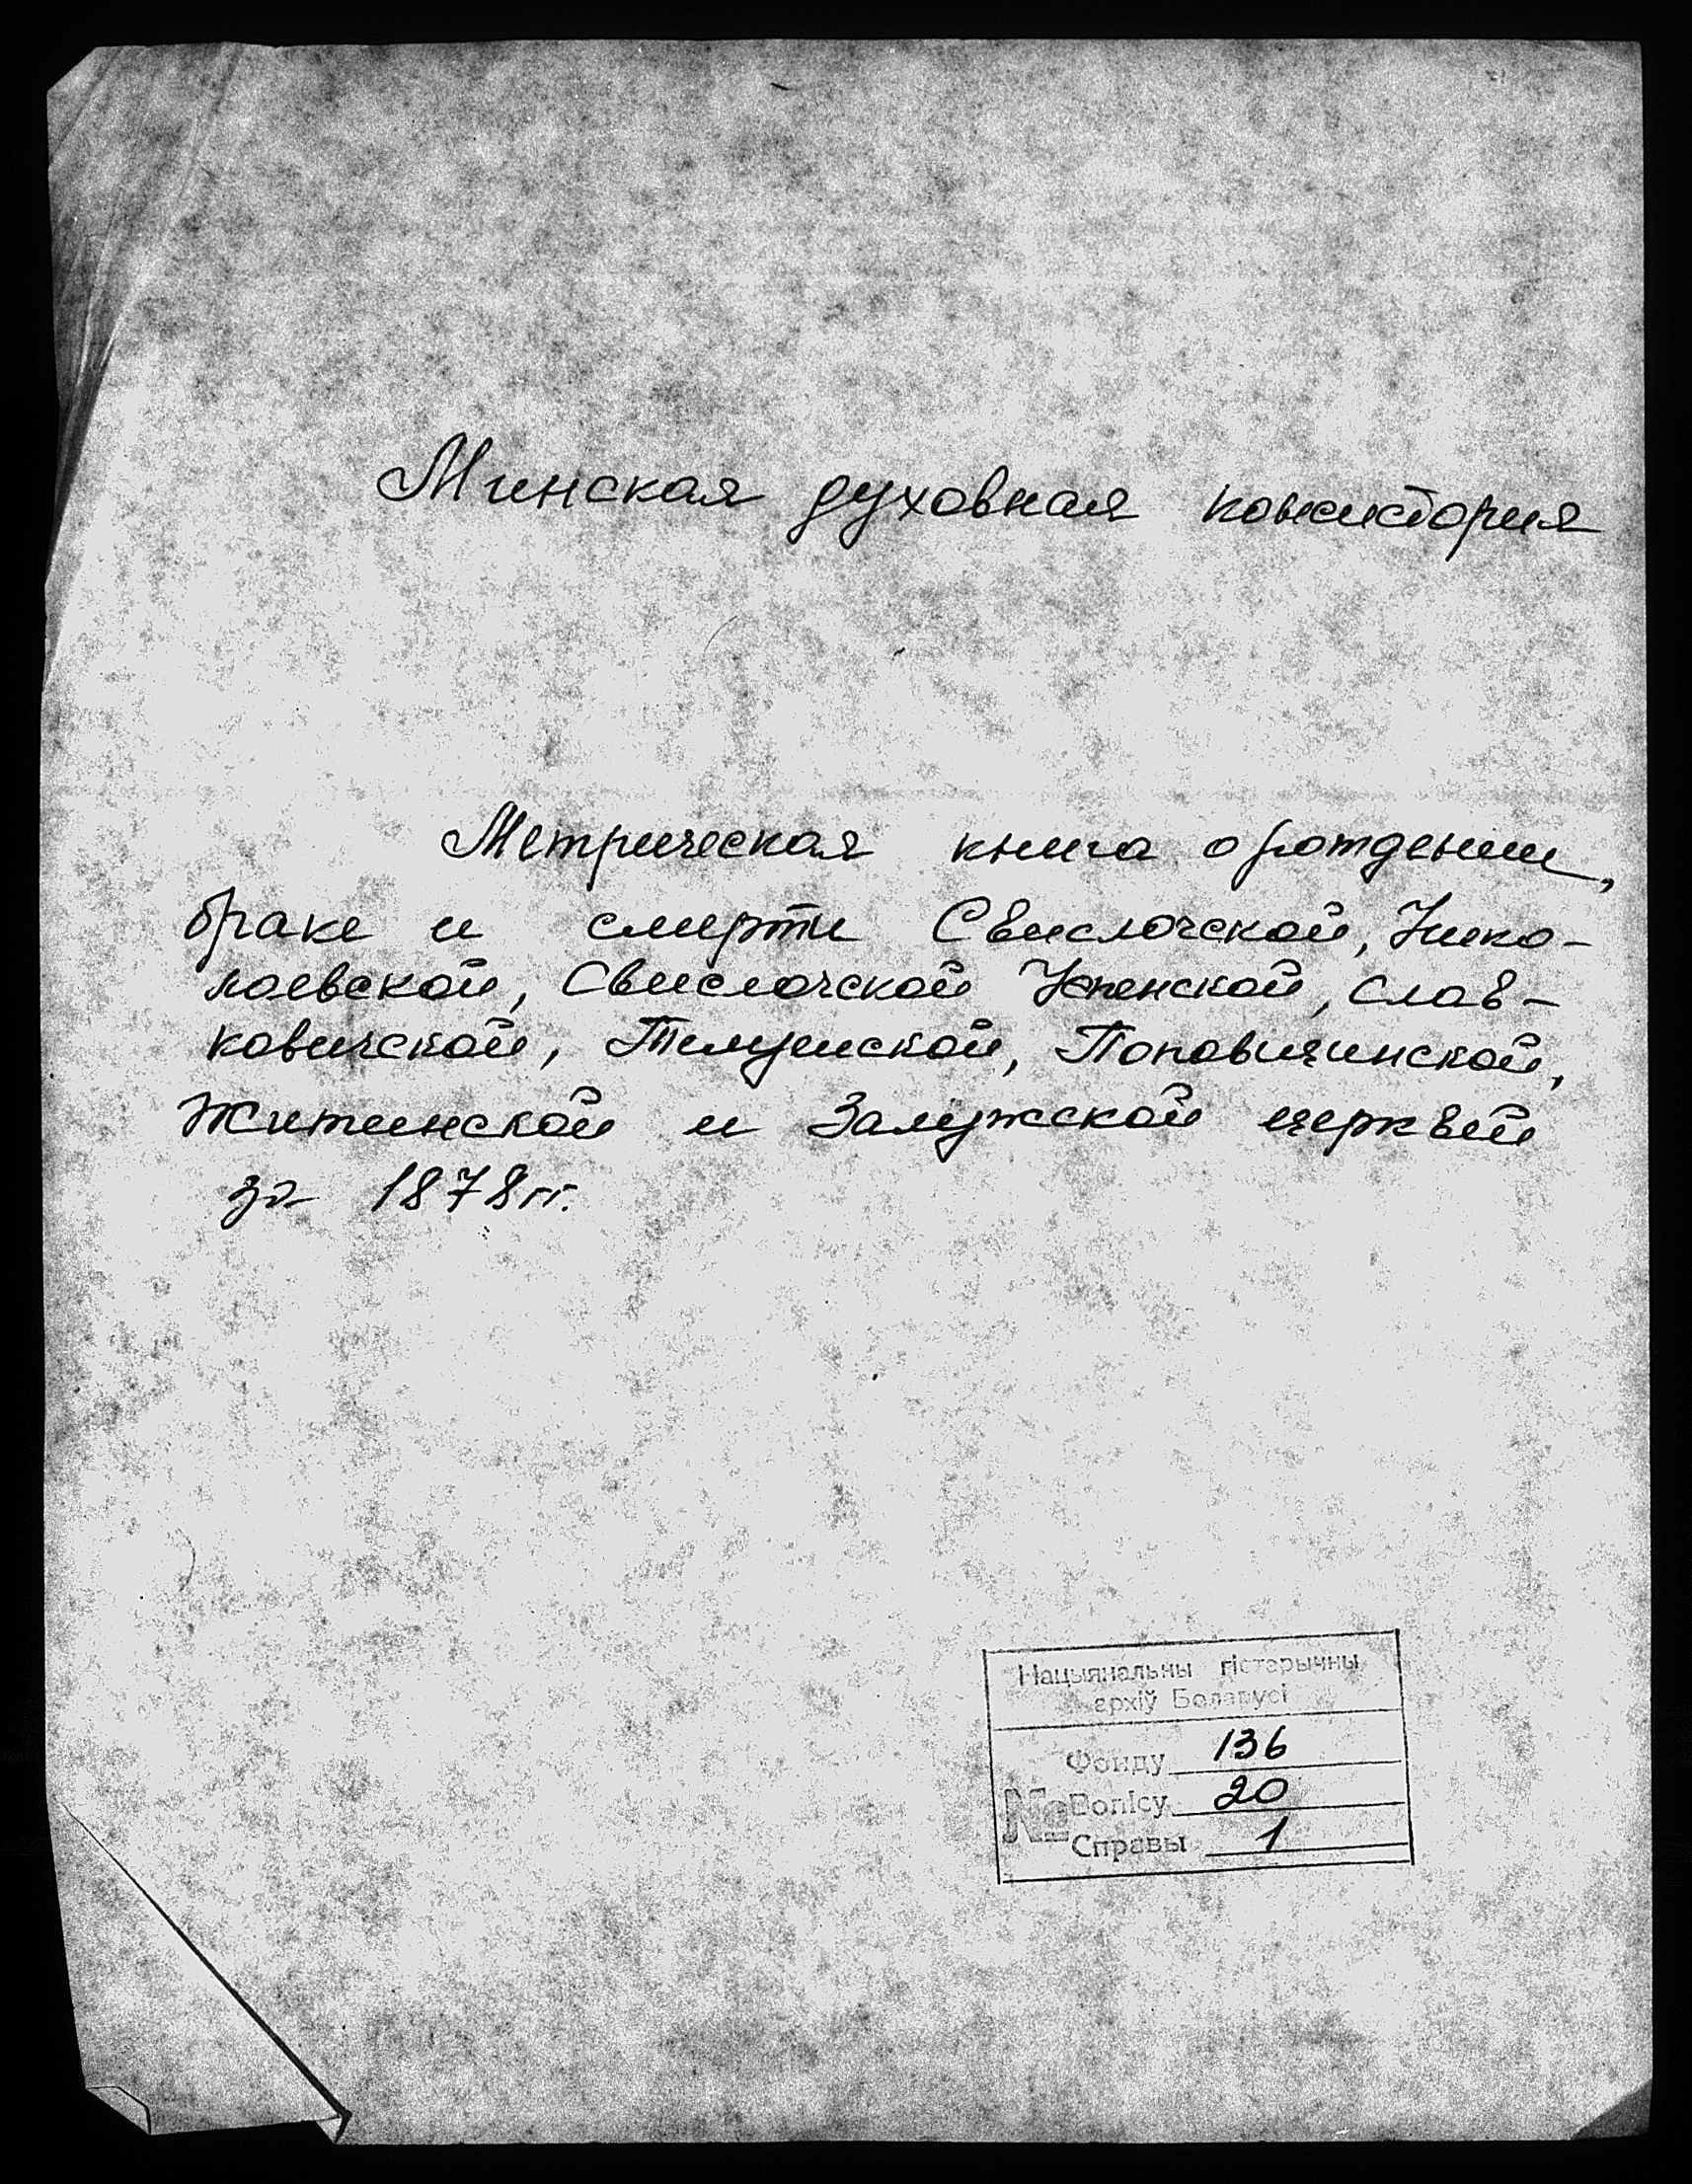 Минская духовная консистория
Метрическая книга о рождении,
браке и смерти Свислочской, Нико-
лаевской, Свислочской Успенской, Слав-
ковичской, Телушской, Поповщинской,
Житинской и Залужской церквей
за 1878 гг.
Нацыянальны гістарычны
архіў Беларусі
Фонду 136
№ Вопісу 20
Справы 1